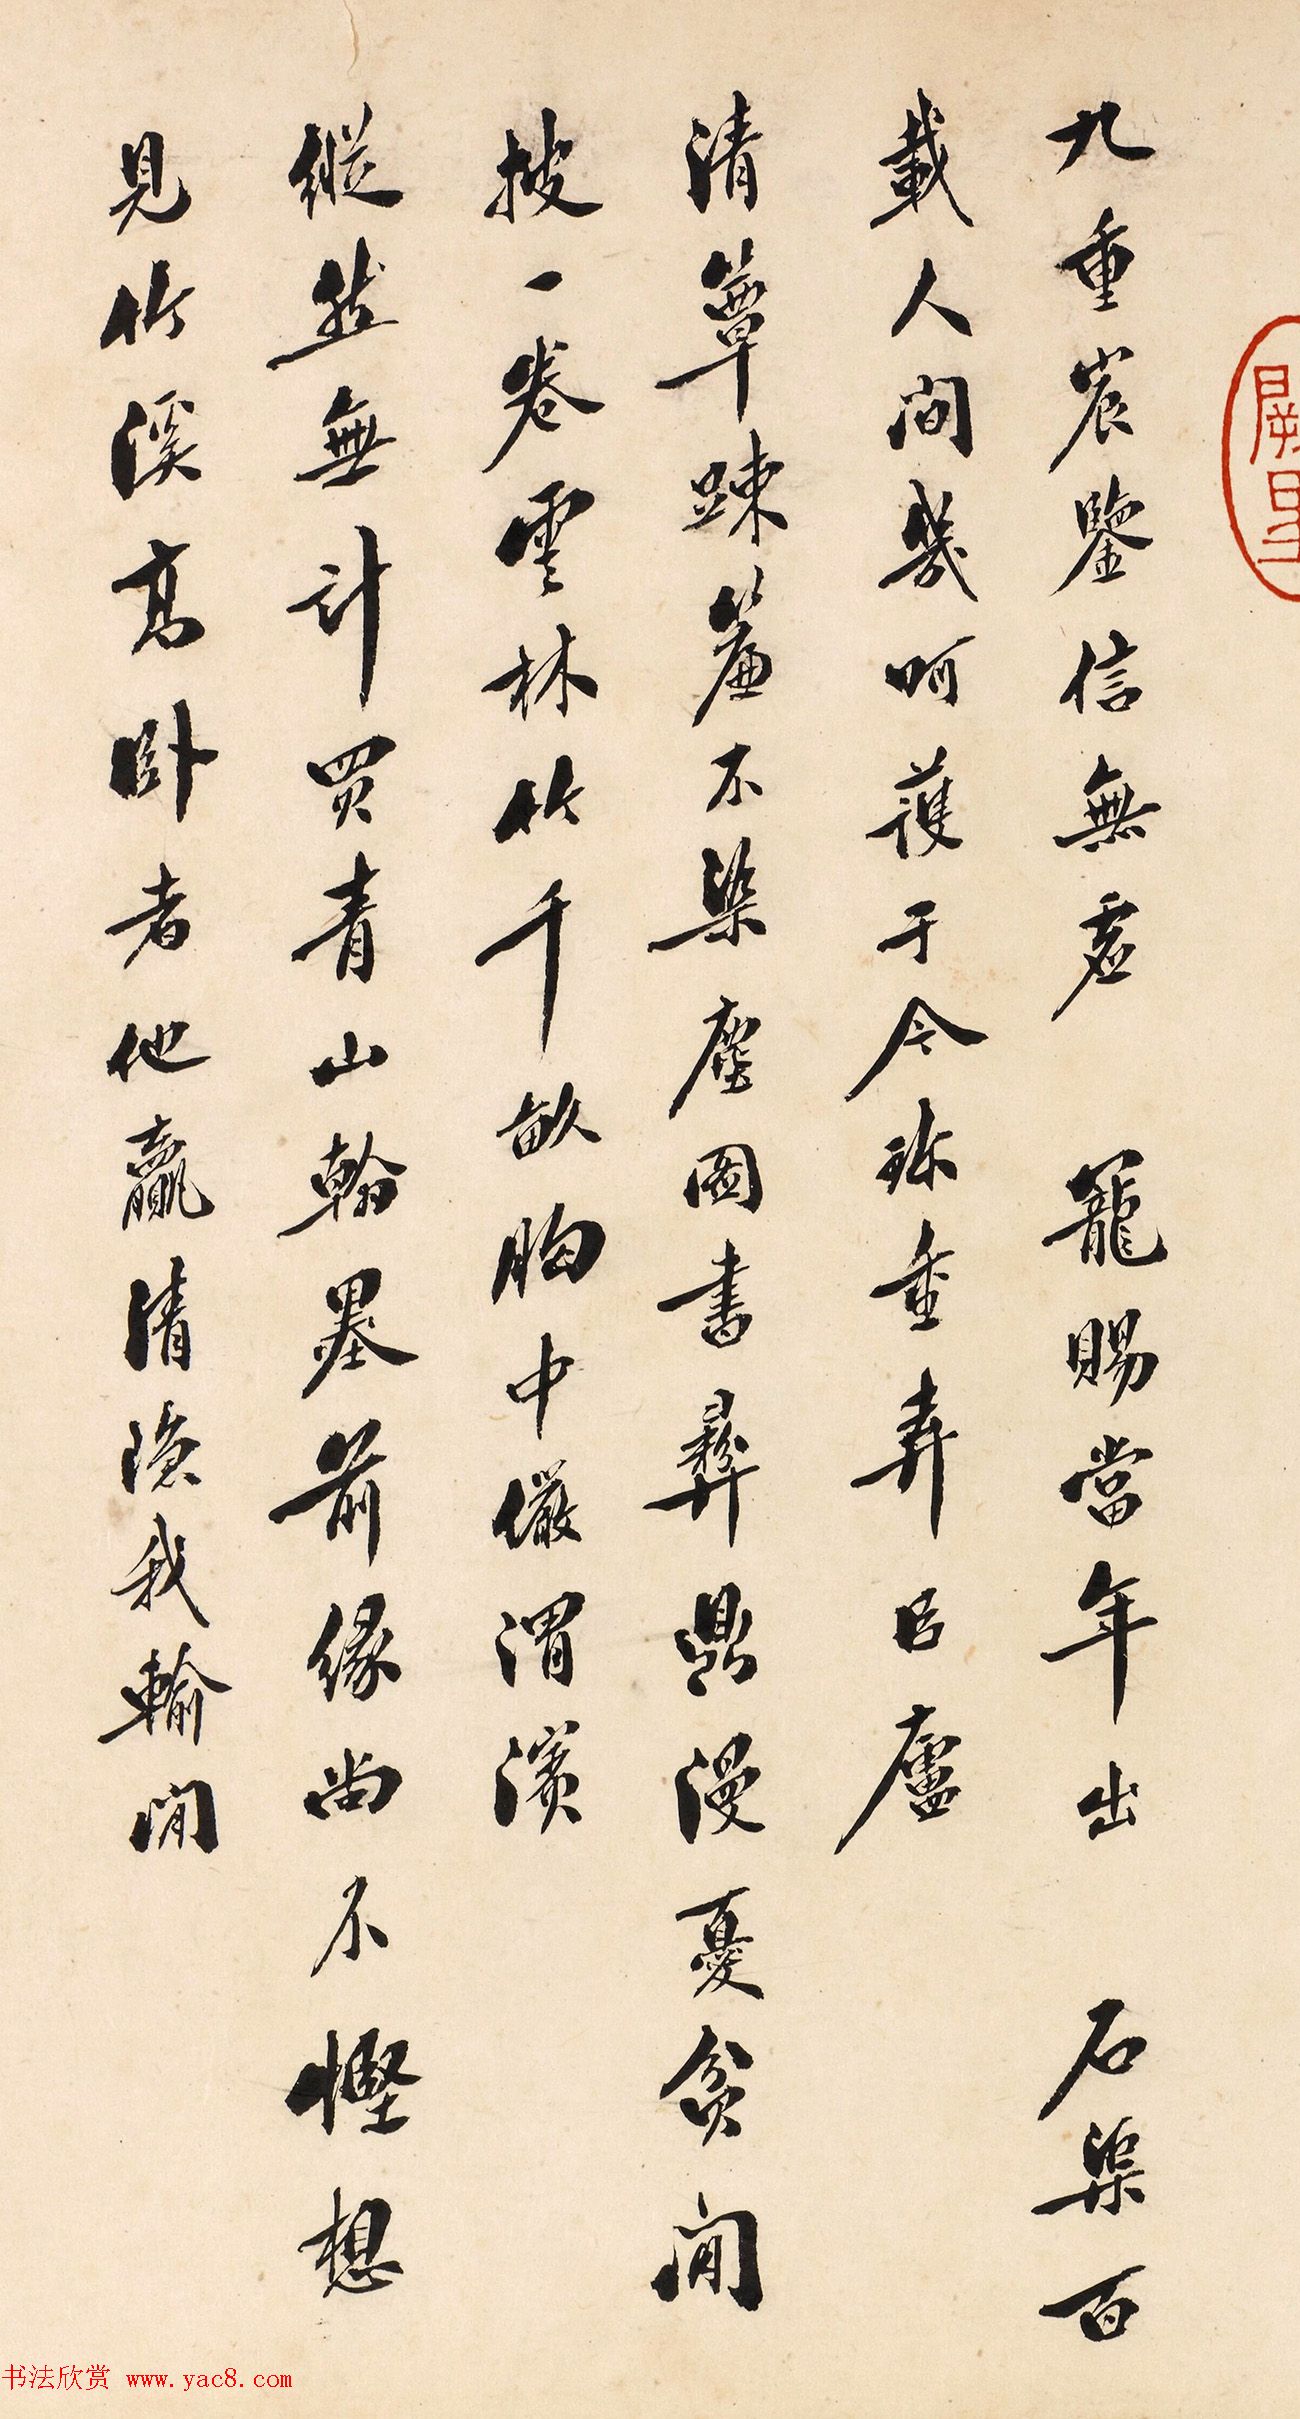 九重宸鑒信無虛 籠賜當年出 石渠百
載人間幾呵護于今珍重弆臣廬
清簟疎簾不染塵圖書彝鼎漫憂貧閒
披一卷雲林竹千畝胸中儼渭濱
縱然無計買青山翰墨前緣尚不慳想
見竹溪高臥者他贏清隱我輸閒
书法欣赏 www.yac8.com